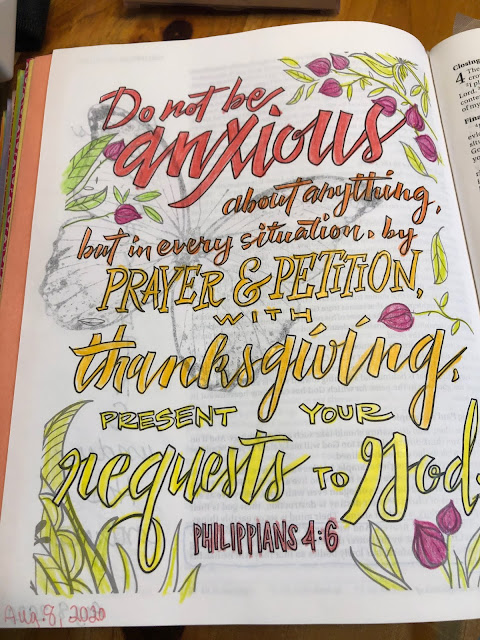 Do not be
anxious
about anything,
but in every situation, by
PRAYER & PETITION,
WITH
thanksgiving,
PRESENT YOUR
requests TO God.
PHILIPPIANS 4:6
Aug 8, 2020
Closing
4 The
Lord.
Fina